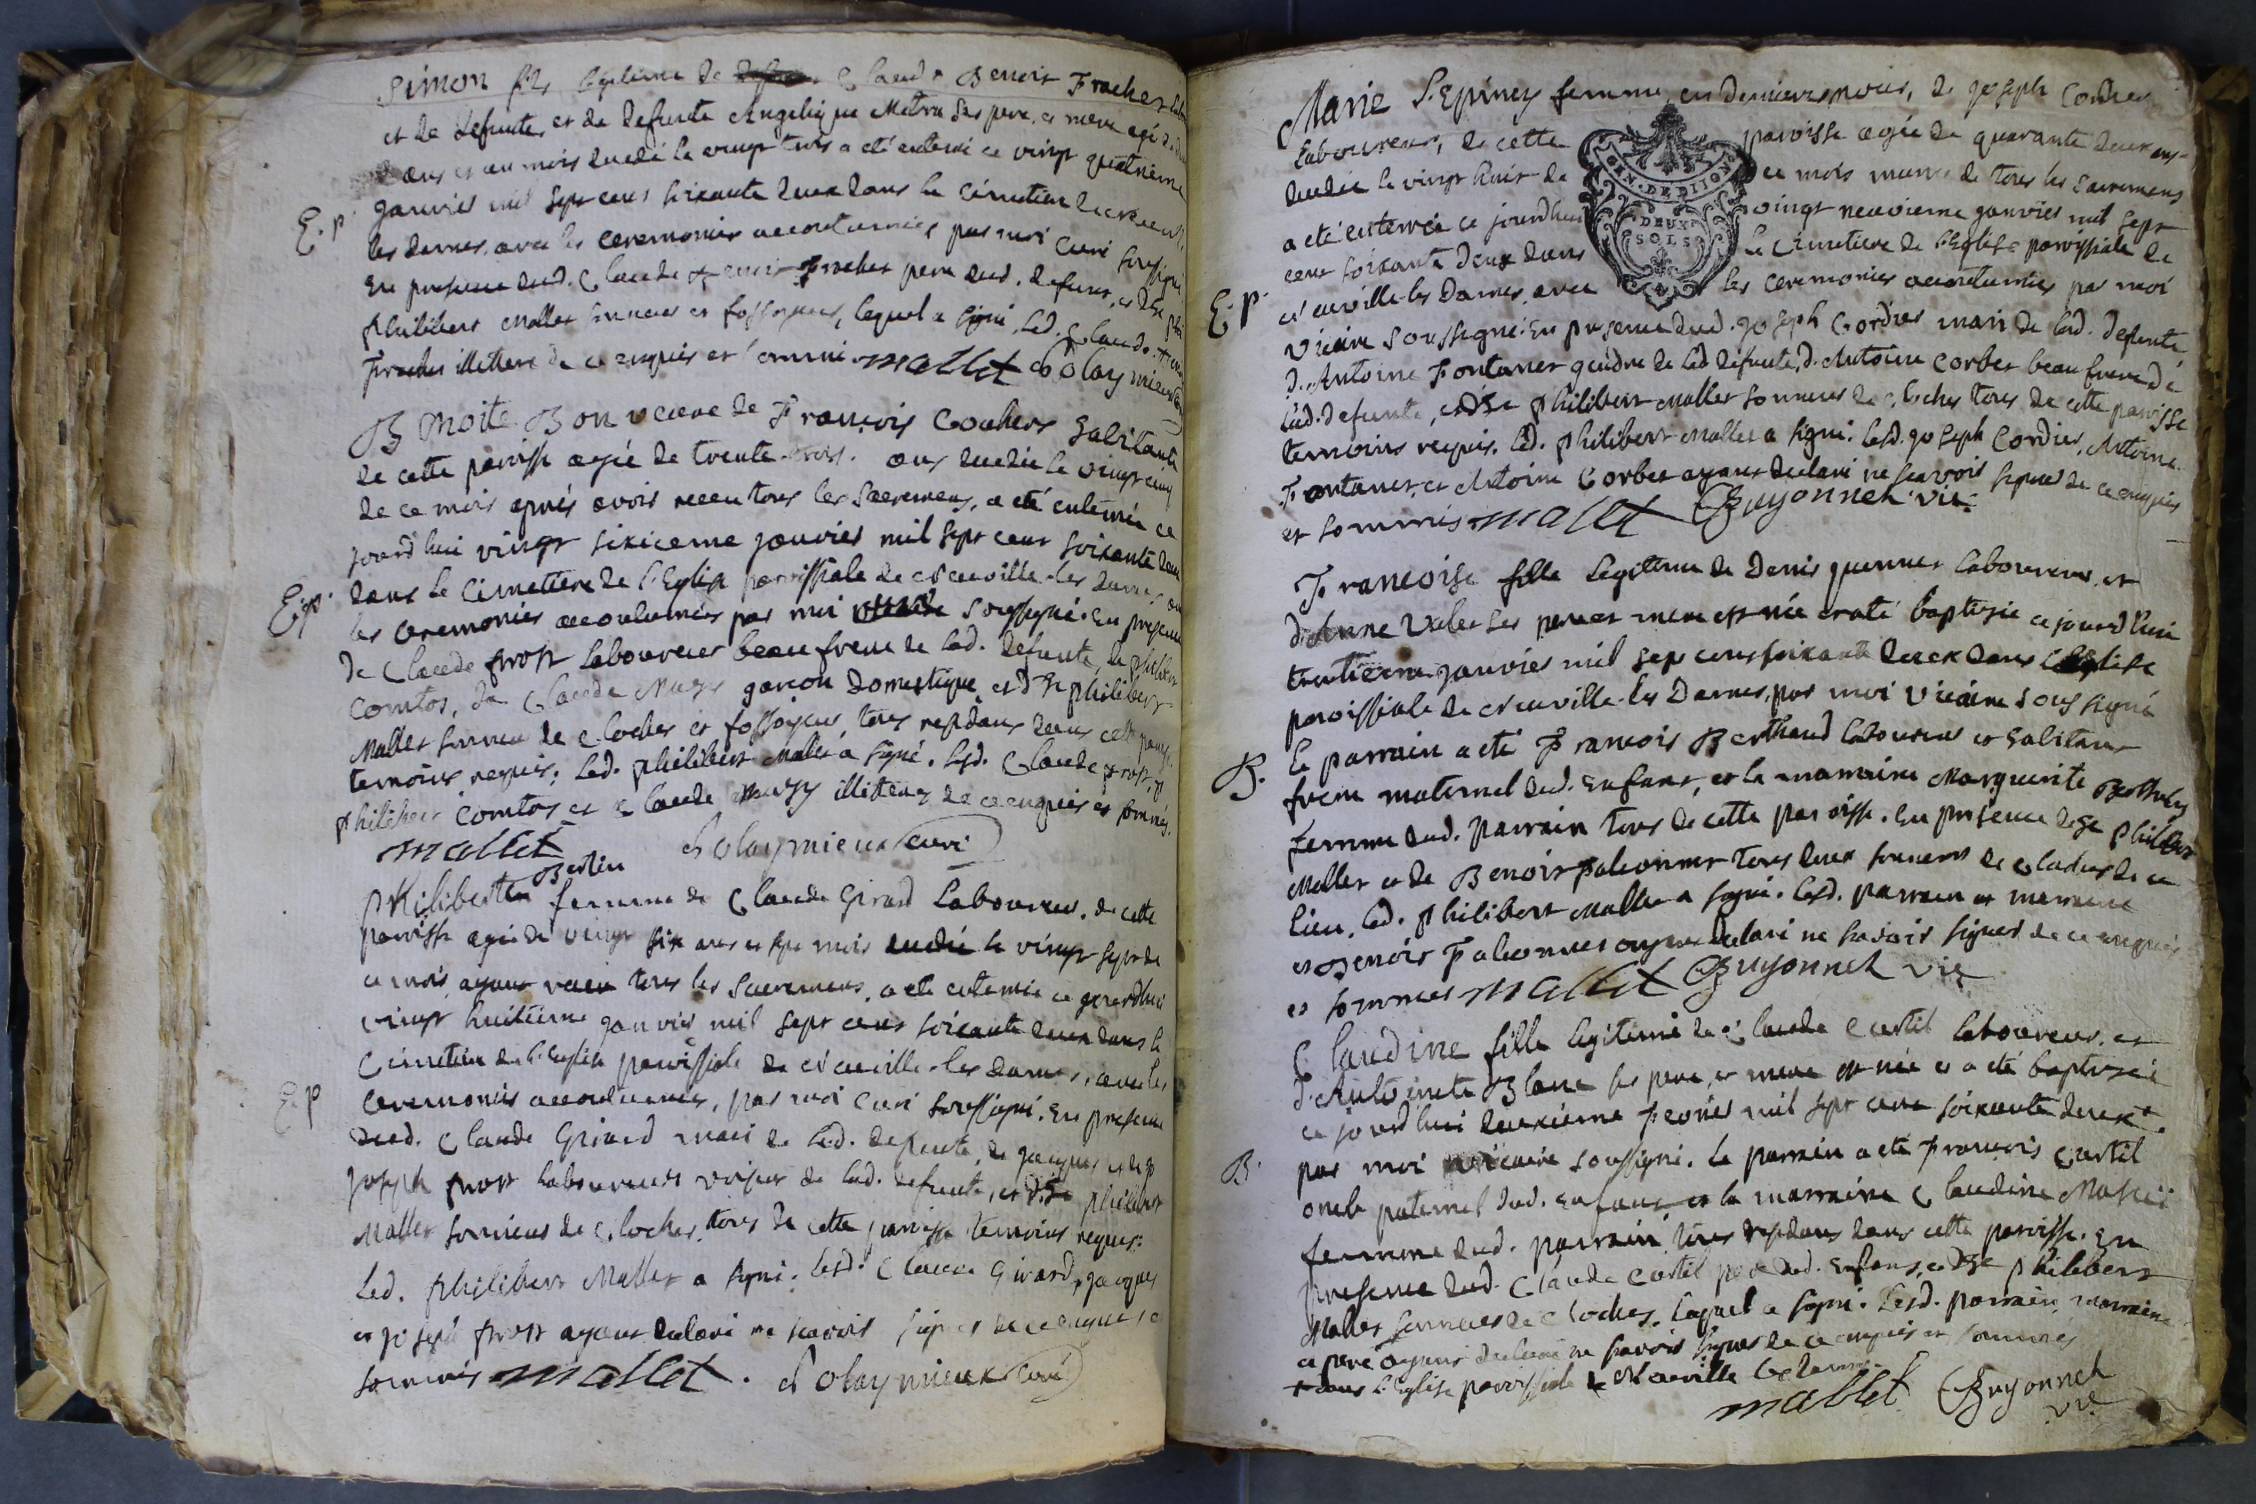 Simon fils legitime de Claude Benoit Frachet
et de defunte, et de defunte Angelique Metra ses pere, et mere agé de
ans et un mois decedé le vingt trois a eté enterré ce vingt quatrieme
janvier mil sept cens soixante deux dans le Cimetiere de
E. p.
les dames, avec les ceremonies accoutumées par moi Curé soussigné
En presence dud. Claude Benoit Frachet pere dud. defunt, et de
philibert Mallet sonneur et fossoyeur, lequel a signé, led. Claude
Frachet illitteré de ce enquis et sommé mallet
Benoite Bon veuve de François Cochers habitante
de cette paroisse agée de trente trois ans decedée le vingt cinq
de ce mois aprés avoir receu tous les Sacremens, a eté enterrée ce
jourd'hui vingt sixieme janvier mil sept cent soixante deux
E. p.
dans le Cimettiere de l'Eglise parroissiale de Neuville les dames,
les ceremonies accoutumées par moi soussigné. En presence
de Claude prost laboureur beau frere de lad. defunte, de philibert
Comtos, de Claude Muzy garcon domestique, et de philibert
Mallet sonneur de cloches et fossoyeur, tous residans dans cette
temoins requis; led. philibert Mallet a signé. lesd. Claude prost,
philibert Comtos et Claude Muzy illitterez de ce enquis et sommés.
mallet curé
Bertin
Philiberte femme de Claude Girard Laboureur de cette
paroisse agée de vingt six ans et sept mois decedée le vingt sept de
ce mois, ayant receu tous les Sacremens, a eté enterrée ce jourdhui
vingt huitieme janvier mil sept cens soixante deux dans le
Cimetiere de l'Eglise paroissiale de Neuville les dames, avec les
E. p
ceremonies accoutumées, par moi Curé soussigné. En presence
dud. Claude Girard mari de lad. defunte, de jacques et de
joseph prost laboureurs voisins de lad. defunte, et de philibert
Mallet sonneur de cloches, tous de cette paroisse temoins requis:
Led. philibert Mallet a signé. Lesd. Claude Girard, jacques
et joseph prost ayant declaré ne scavoir signer de ce enquis et
sommés mallet. curé
Marie L'Epiney femme en dernieres noces, de joseph Cordier
laboureur, de cette paroisse agée de quarante deux ans
GEN. DE DIJON
DEUX
SOLS
decedée le vingt huit de ce mois munie de tous les Sacremens
a eté enterrée ce jourdhui vingt neuvieme janvier mil sept
cent soixante deux dans le Cimetiere de l'Eglise paroissiale de
E. P.
Neuville-les Dames, avec les ceremonies accoutumées par moi
Vicaire soussigné. En presence dud. joseph Cordier mari de lad. defunte
d'Antoine Fontanet gendre de lad defunte, d'Antoine Corbet beau frere de
lad. defunte, et de philibert Mallet sonneur de cloches tous de cette paroisse
temoins requis. led. philibert Mallet a signé. lesd. joseph Cordier, Antoine
Fontanet, et Antoine Corbet ayant declaré ne scavoir signer de ce enquis
et sommés. mallet Guyonnet vic.
Francoise fille legitime de Denis quennet laboureur, et
d'Anne Valet ses pere et mere est née et a eté baptisée ce jourd'hui
trentieme janvier mil sept cens soixante deux dans l'Eglise
paroissiale de Neuville les Dames, par moi Vicaire soussigné
B.
le parrain a eté Francois Berthaud laboureur et habitant
frere maternel dud. enfant, et la marraine Marguerite
femme dud. parrain tous de cette paroisse. En presence de philibert
Mallet et de Benoit falconnet tous deux sonneurs de cloches de ce
lieu. led. philibert Mallet a signé. lesd. parrain et marraine
et Benoit Falconnet ayant declaré ne savoir signer de ce enquis
et sommés mallet Guyonnet vic
Claudine fille legitime de Claude Curtil laboureur, et
d'Antoinete Blanc ses pere, et mere est née et a eté baptisée
ce jourd'hui deuxieme fevrier mil sept cens soixante deux+.
B.
par moi vicaire soussigné. le parrain a eté francois Curtil
oncle paternel dud. enfant et la marraine Claudine
femme dud. parrain, tous residans dans cette paroisse. En
presence dud. Claude Curtil pere dud. enfant, et de philibert
Mallet sonneur de cloches, lequel a signé. lesd. parrain, marraine
et pere ayant declaré ne savoir signer de ce enquis et sommés
+ dans l'Eglise paroissiale de Neuville les dames.
mallet Guyonnet
vic